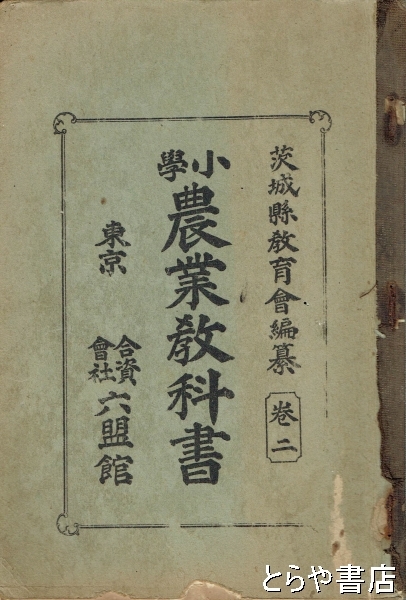 茨城縣教育會編纂 巻二
小學 農業教科書
東京 合資會社 六盟館
とらや書店